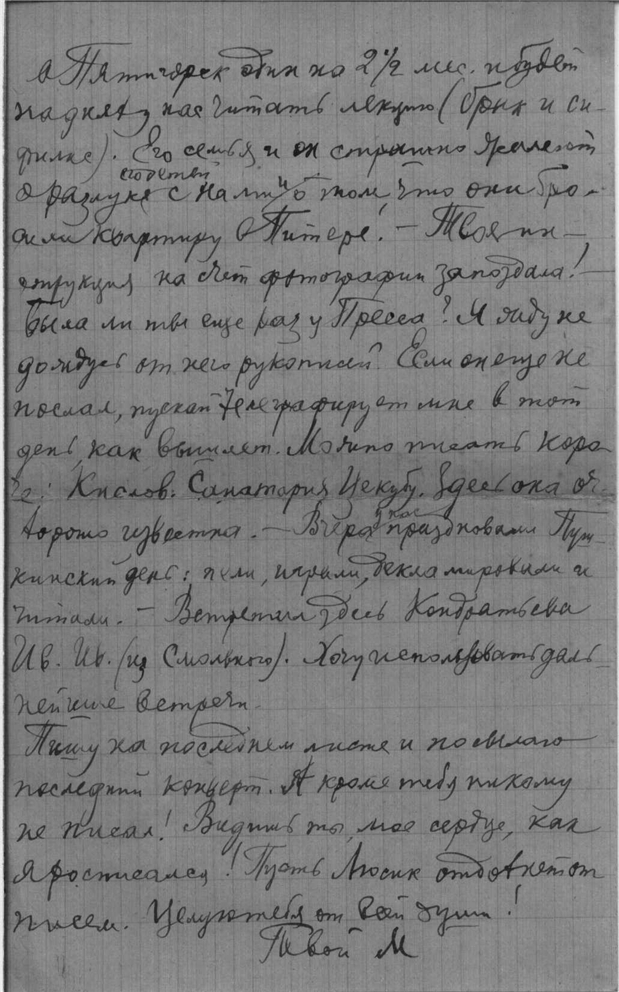 в Пятигорск один на 2 1/2 мес. и будет
на днях у нас читать лекцию (брак и си-
филис). Его семья и он страшно жалеют
о разлуке с нами и о том, что они бро-
сили квартиру в Питере! – Твоя ин-
струкция на счет фотографии запоздала! –
Была ли ты еще раз у Пресса? Я жду не
дождусь от него рукописей. Если он еще не
послал, пускай телеграфирует мне в тот
день, как вышлет. Можно писать коро-
че: Кислов. Санатория Цекубу. Здесь она оч.
хорошо известна. – Вчера у нас праздновали Пуш-
кинский день: пели, играли, декламировали и
читали. – Встретил здесь Кондратьева
Ив. Ив. (из Смольного). Хочу использовать даль-
нейшие встречи.
Пишу на последнем листе и посылаю
последний конверт. А кроме тебя никому
не писал! Видишь ты, мое сердце, как
я росписался! Пусть Люсик отдохнет от
писем. Целую тебя от всей души!
Твой М